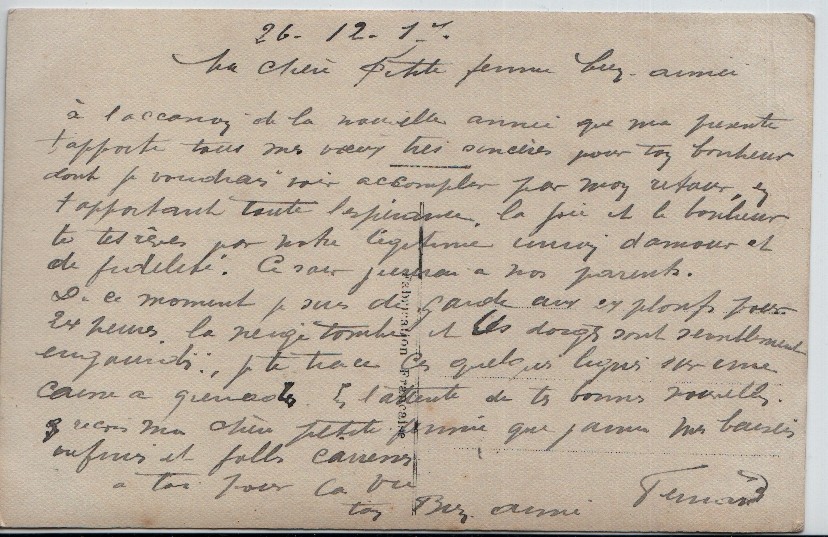 26-12-17.
Ma chère Petite femme bien aimée
à l'occasion de la nouvelle année que ma présente
t'apporte tous mes vœux très sincères pour ton bonheur
dont je voudrais voir accomplir par mon retour, en
t'apportant toute l'espérance, la joie et le bonheur
de tes rêves par notre légitime union d'amour et
de fidélité. Ce soir j'écrirai à nos parents.
De ce moment je suis de garde aux explosifs pour
24 heures la neige tombe et les doigts sont
engourdis, je te trace ces quelques lignes sur une
caisse à grenades. En l'attente de tes bonnes nouvelles
reçois ma chère petite femme que j'aime mes baisers
infinis et folles caresses
à toi pour la vie
ton Bien aimé Fernand
Fabrication Française